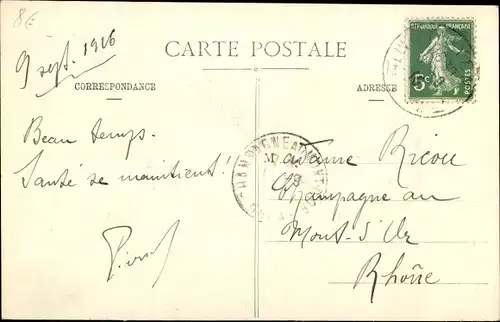 8€
9 sept. 1916
CARTE POSTALE
CORRESPONDANCE
ADRESSE
REPUBLIQUE FRANÇAISE
5c
POSTES
Beau temps.
Santé se maintient!
Madame Ricou
Champagne au
Mont-d'Or
Rhône